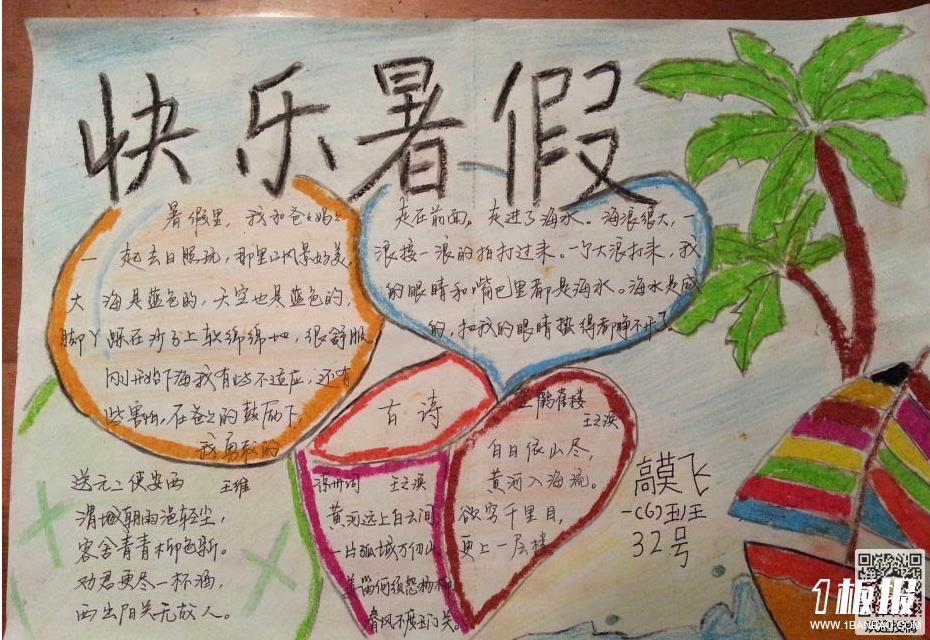 快乐暑假
暑假里，我和爸爸妈妈
一起去日照玩，那里的风景好美，
大海是蓝色的，天空也是蓝色的，
脚丫踩在沙子上软绵绵地，很舒服
刚开始下海我有些不适应，还有
些害怕，在爸爸的鼓励下，
我勇敢的
走在前面，走进了海水。海浪很大，一
浪接一浪的拍打过来。一个大浪打来，我
的眼睛和嘴巴里都是海水。海水是咸
的，把我的眼睛撒得都睁不开了。
古诗
送元二使安西 王维
渭城朝雨浥轻尘，
客舍青青柳色新。
劝君更尽一杯酒，
西出阳关无故人。
凉州词 王之涣
黄河远上白云间
一片孤城万仞山
羌笛何须怨杨柳
春风不度玉门关。
登鹳雀楼
王之涣
白日依山尽，
黄河入海流。
欲穷千里目，
更上一层楼
高莫飞
一(6)班
32号
1板报
WWW.1BANBAO.COM